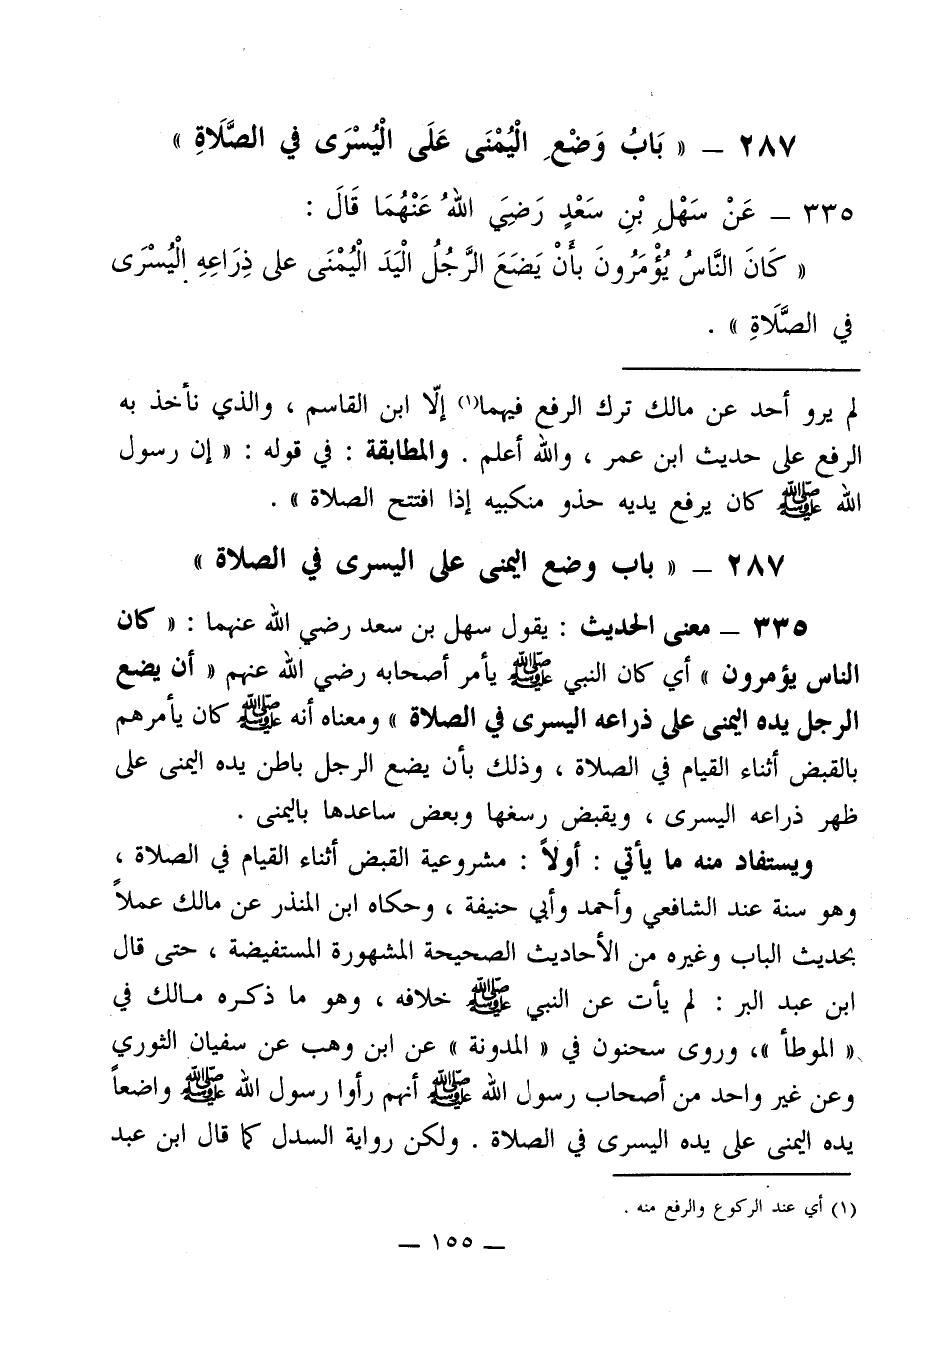 ٢٨٧ ــ « بَابُ وَضْعِ الْيُمْنَى عَلَى الْيُسْرَى في الصَّلَاةِ »
٣٣٥ ــ عَنْ سَهْلِ بْنِ سَعْدٍ رَضِيَ اللهُ عَنْهُمَا قَالَ :
« كَانَ النَّاسُ يُؤْمَرُونَ بأَنْ يَضَعَ الرَّجُلُ الْيَدَ الْيُمْنَى على ذِرَاعِهِ الْيُسْرَى
في الصَّلَاةِ » .
لم يرو أحد عن مالك ترك الرفع فيهما(١) إلّا ابن القاسم ، والذي نأخذ به
الرفع على حديث ابن عمر ، والله أعلم . والمطابقة : في قوله : « إن رسول
الله ﷺ كان يرفع يديه حذو منكبيه إذا افتتح الصلاة » .
٢٨٧ ــ « باب وضع اليمنى على اليسرى في الصلاة »
٣٣٥ ــ معنى الحديث : يقول سهل بن سعد رضي الله عنهما : « كان
الناس يؤمرون » أي كان النبي ﷺ يأمر أصحابه رضي الله عنهم « أن يضع
الرجل يده اليمنى على ذراعه اليسرى في الصلاة » ومعناه أنه ﷺ كان يأمرهم
بالقبض أثناء القيام في الصلاة ، وذلك بأن يضع الرجل باطن يده اليمنى على
ظهر ذراعه اليسرى ، ويقبض رسغها وبعض ساعدها باليمنى .
ويستفاد منه ما يأتي : أولاً : مشروعية القبض أثناء القيام في الصلاة ،
وهو سنة عند الشافعي وأحمد وأبي حنيفة ، وحكاه ابن المنذر عن مالك عملاً
بحديث الباب وغيره من الأحاديث الصحيحة المشهورة المستفيضة ، حتى قال
ابن عبد البر : لم يأت عن النبي ﷺ خلافه ، وهو ما ذكره مالك في
« الموطأ »، وروى سحنون في « المدونة » عن ابن وهب عن سفيان الثوري
وعن غير واحد من أصحاب رسول الله ﷺ أنهم رأوا رسول الله ﷺ واضعاً
يده اليمنى على يده اليسرى في الصلاة . ولكن رواية السدل كما قال ابن عبد
(١) أي عند الركوع والرفع منه .
ــ ١٥٥ ــ